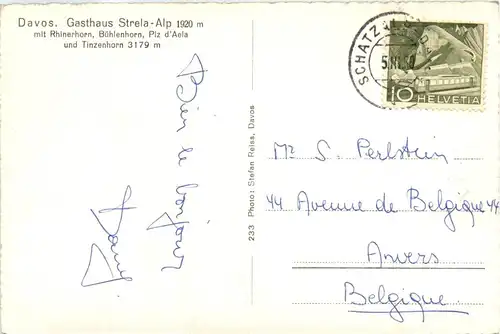 Davos. Gasthaus Strela-Alp 1920 m
mit Rhinerhorn, Bühlenhorn, Piz d'Aela
und Tinzenhorn 3179 m
Bien le bonjour
233 Photo: Stefan Reiss, Davos
SCHATZ
10 HELVETIA
Mr S. Perlstein
44 Avenue de Belgique 44
Anvers
Belgique